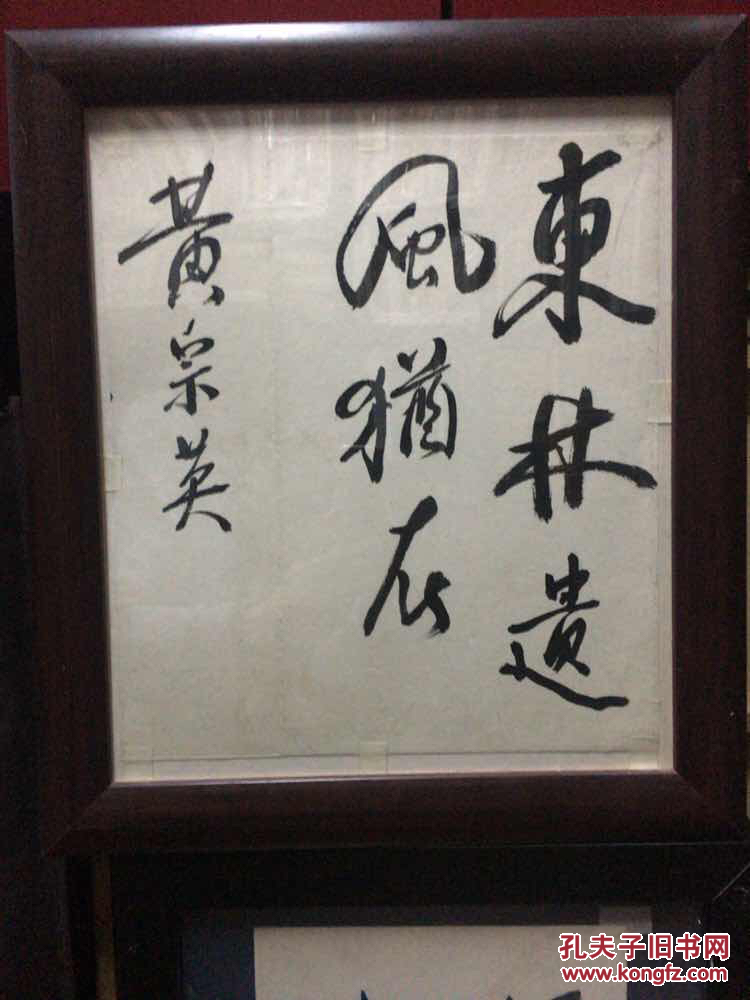 東林遺
風猶在
黃宗英
孔夫子旧书网
www.kongfz.com